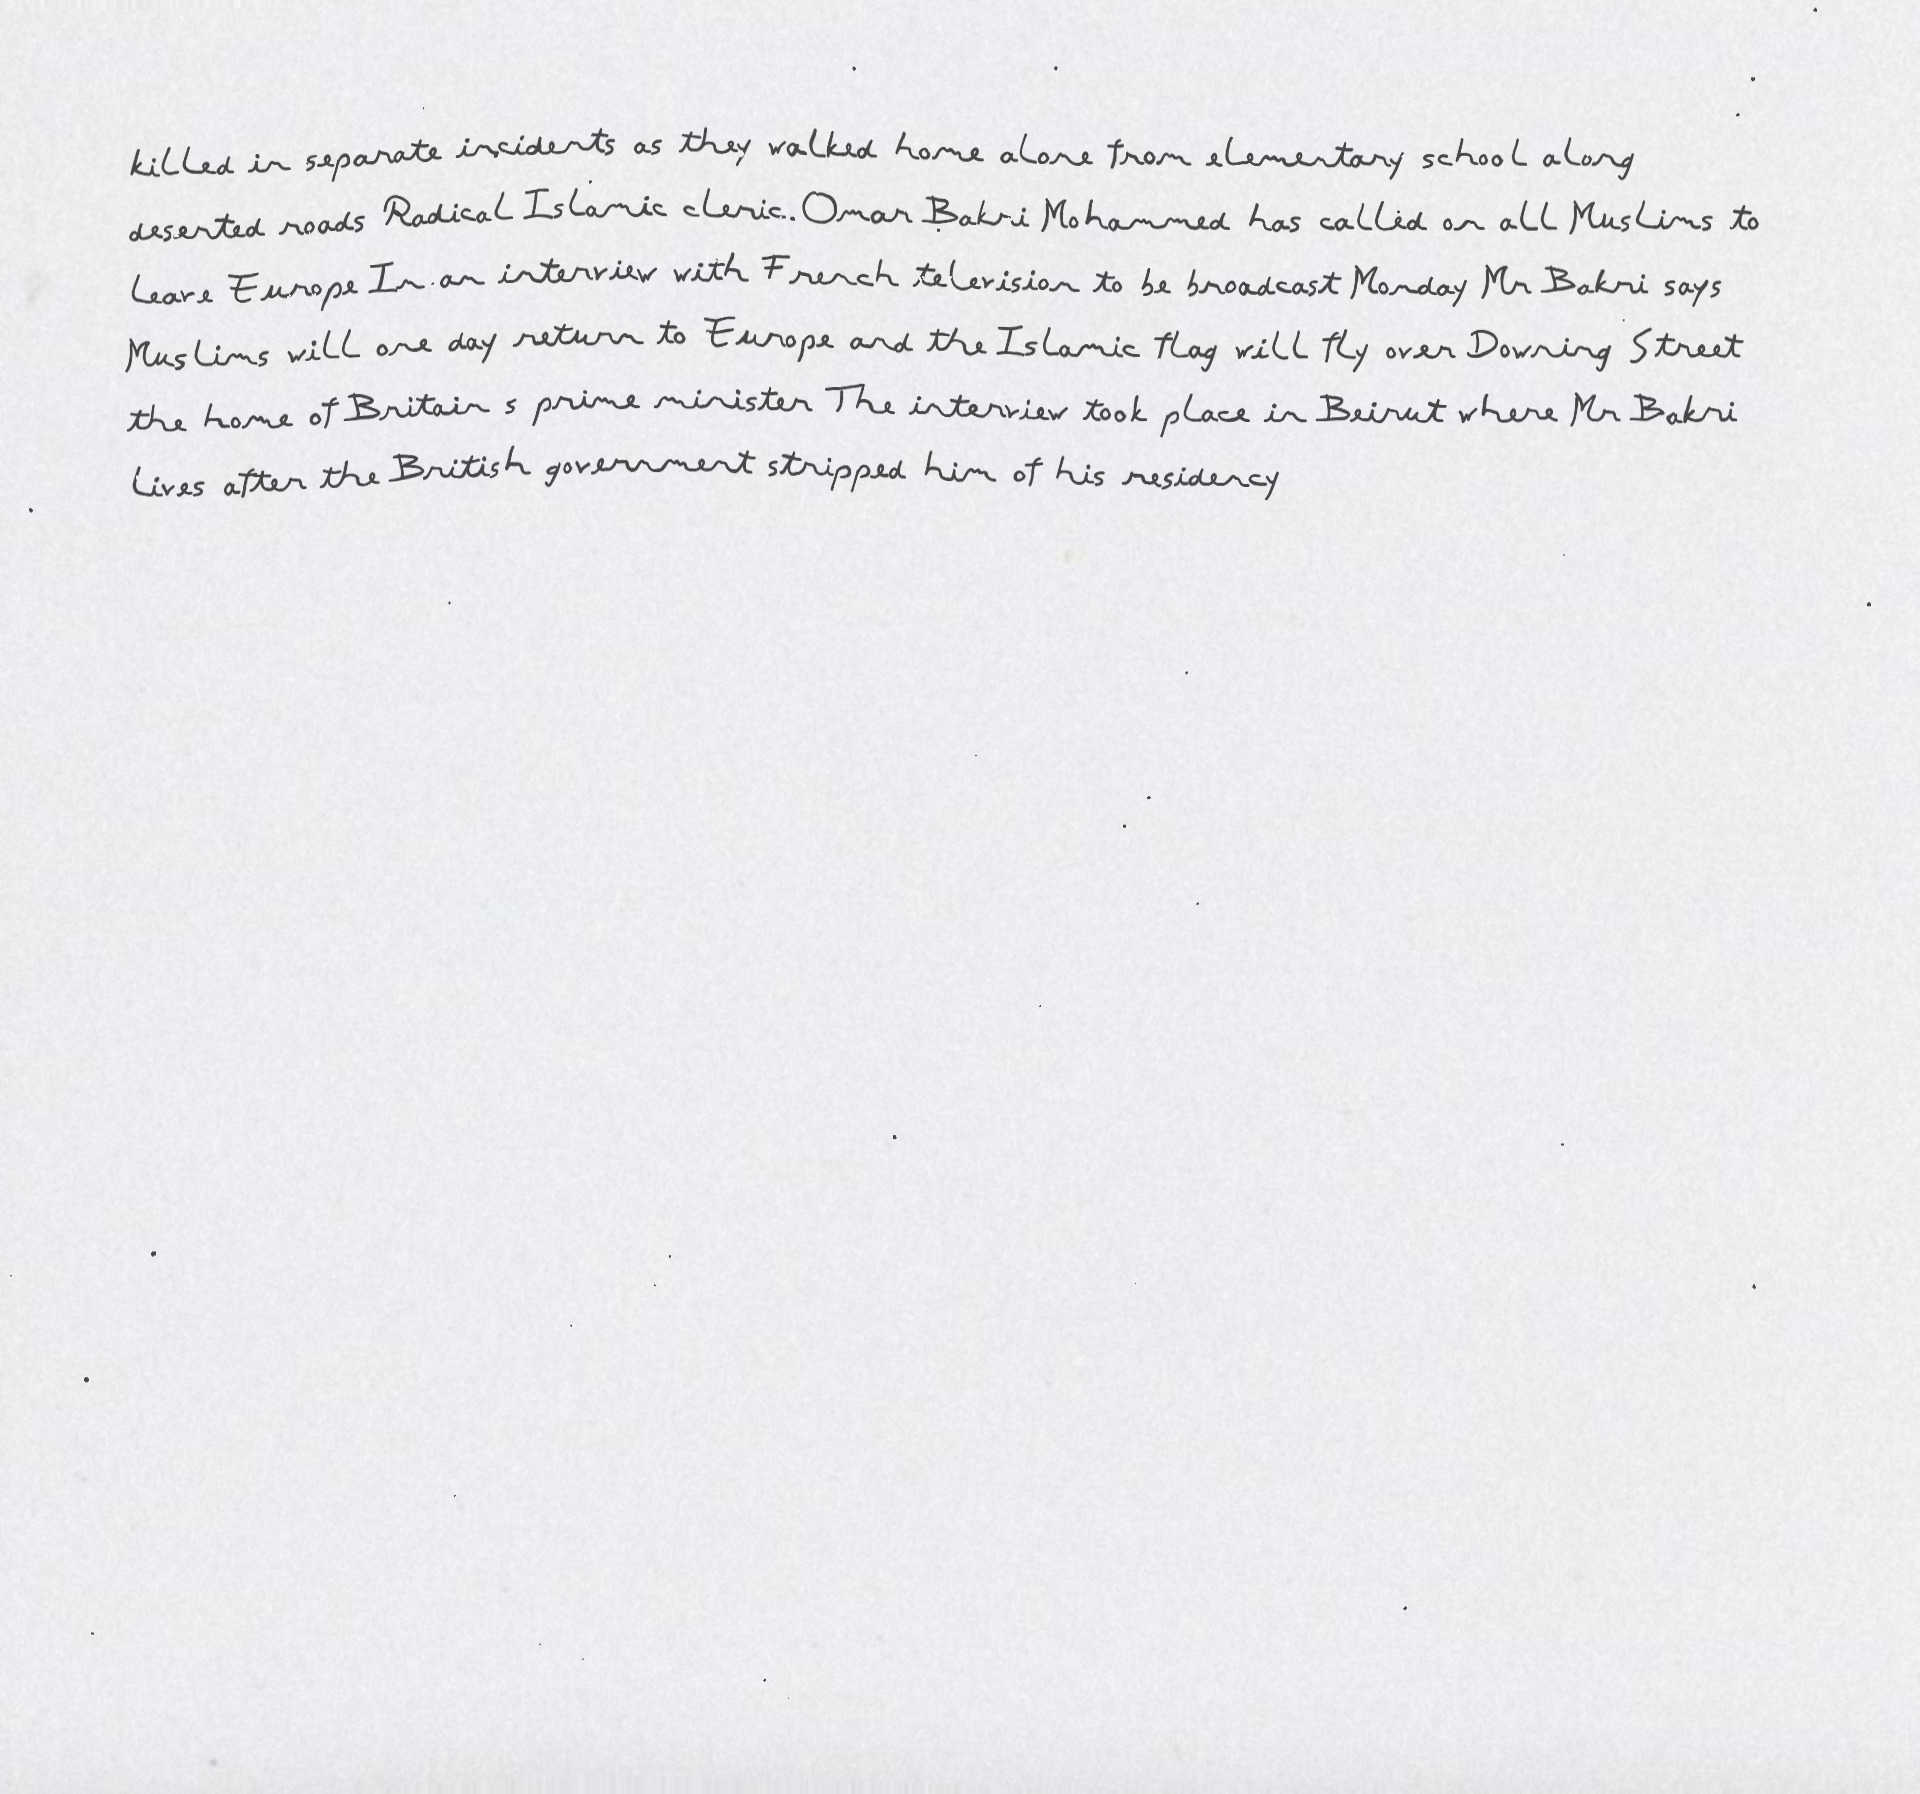 killed in separate incidents as they walked home alone from elementary school along
deserted roads Radical Islamic cleric Omar Bakri Mohammed has called on all Muslims to
leave Europe In an interview with French television to be broadcast Monday Mr Bakri says
Muslims will one day return to Europe and the Islamic flag will fly over Downing Street
the home of Britain s prime minister The interview took place in Beirut where Mr Bakri
lives after the British government stripped him of his residency